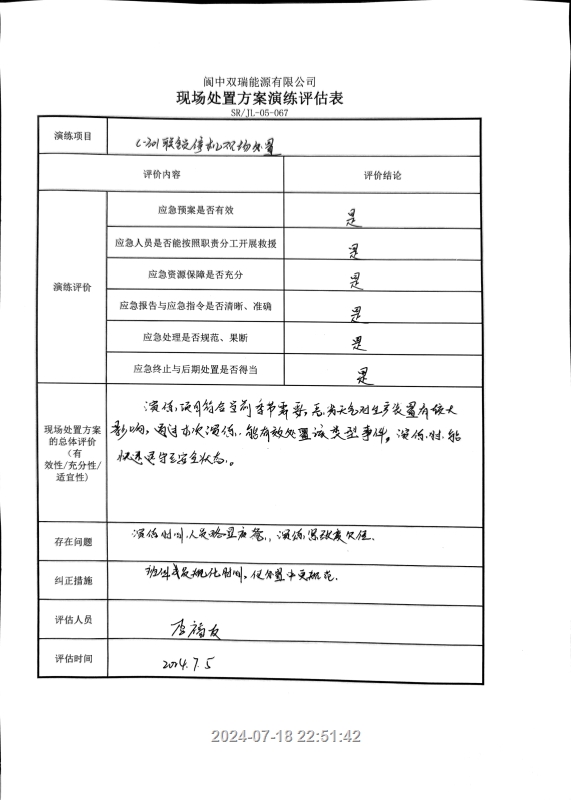 阆中双瑞能源有限公司
现场处置方案演练评估表
SR/JL-05-067
演练项目
C-301联锁停机现场处置
评价内容
评价结论
应急预案是否有效
是
应急人员是否能按照职责分工开展救援
是
应急资源保障是否充分
是
演练评价
应急报告与应急指令是否清晰、准确
是
应急处理是否规范、果断
是
应急终止与后期处置是否得当
是
现场处置方案
的总体评价
(有
效性/充分性/
适宜性)
演练项目符合当前季节需要,天气对生产装置有较大
影响,通过本次演练,能有效处置该类型事件。演练时,能
快速退守至安全状态。
存在问题
演练时间,人员略显,演练紧张度欠佳.
纠正措施
班组时间,处置中更规范.
评估人员
李福友
评估时间
2024.7.5
2024-07-18 22:51:42